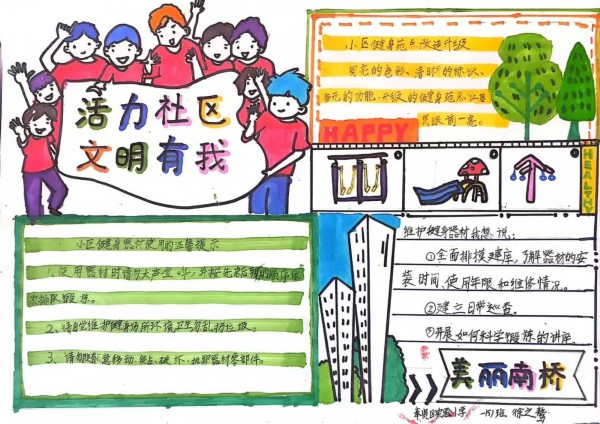 活力社区
文明有我
小区健身范点改造升级
明亮的色彩、清晰的标识、
多元的功能,升级的健身范点让居
民眼前一亮。
HAPPY
HEALTHY
小区健身器材使用的温馨提示
1、使用器材时请勿大声喧哗,并按先来后到的顺序
锻炼。
2、请自觉维护健身场所环境卫生勿乱扔垃圾。
3、请勿随意移动、破坏、拆卸器材零部件。
维护健身器材我想说:
①全面排摸建库,了解器材的安
装时间、使用年限和维修情况。
②建立日常巡查。
③开展如何科学锻炼的讲座。
美丽南桥
小学